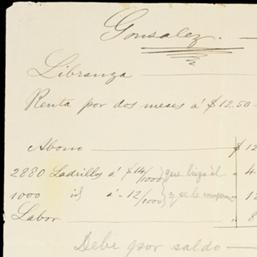 Gonsalez. —
Libranza —
Renta por dos meses á $12.50 -
Abono — $12
2880 Ladrillos á $14/1000 } que hizo él - 4
1000 id á - 12/1000 } y se le - 12
Labor — " 8
Debe por saldo —